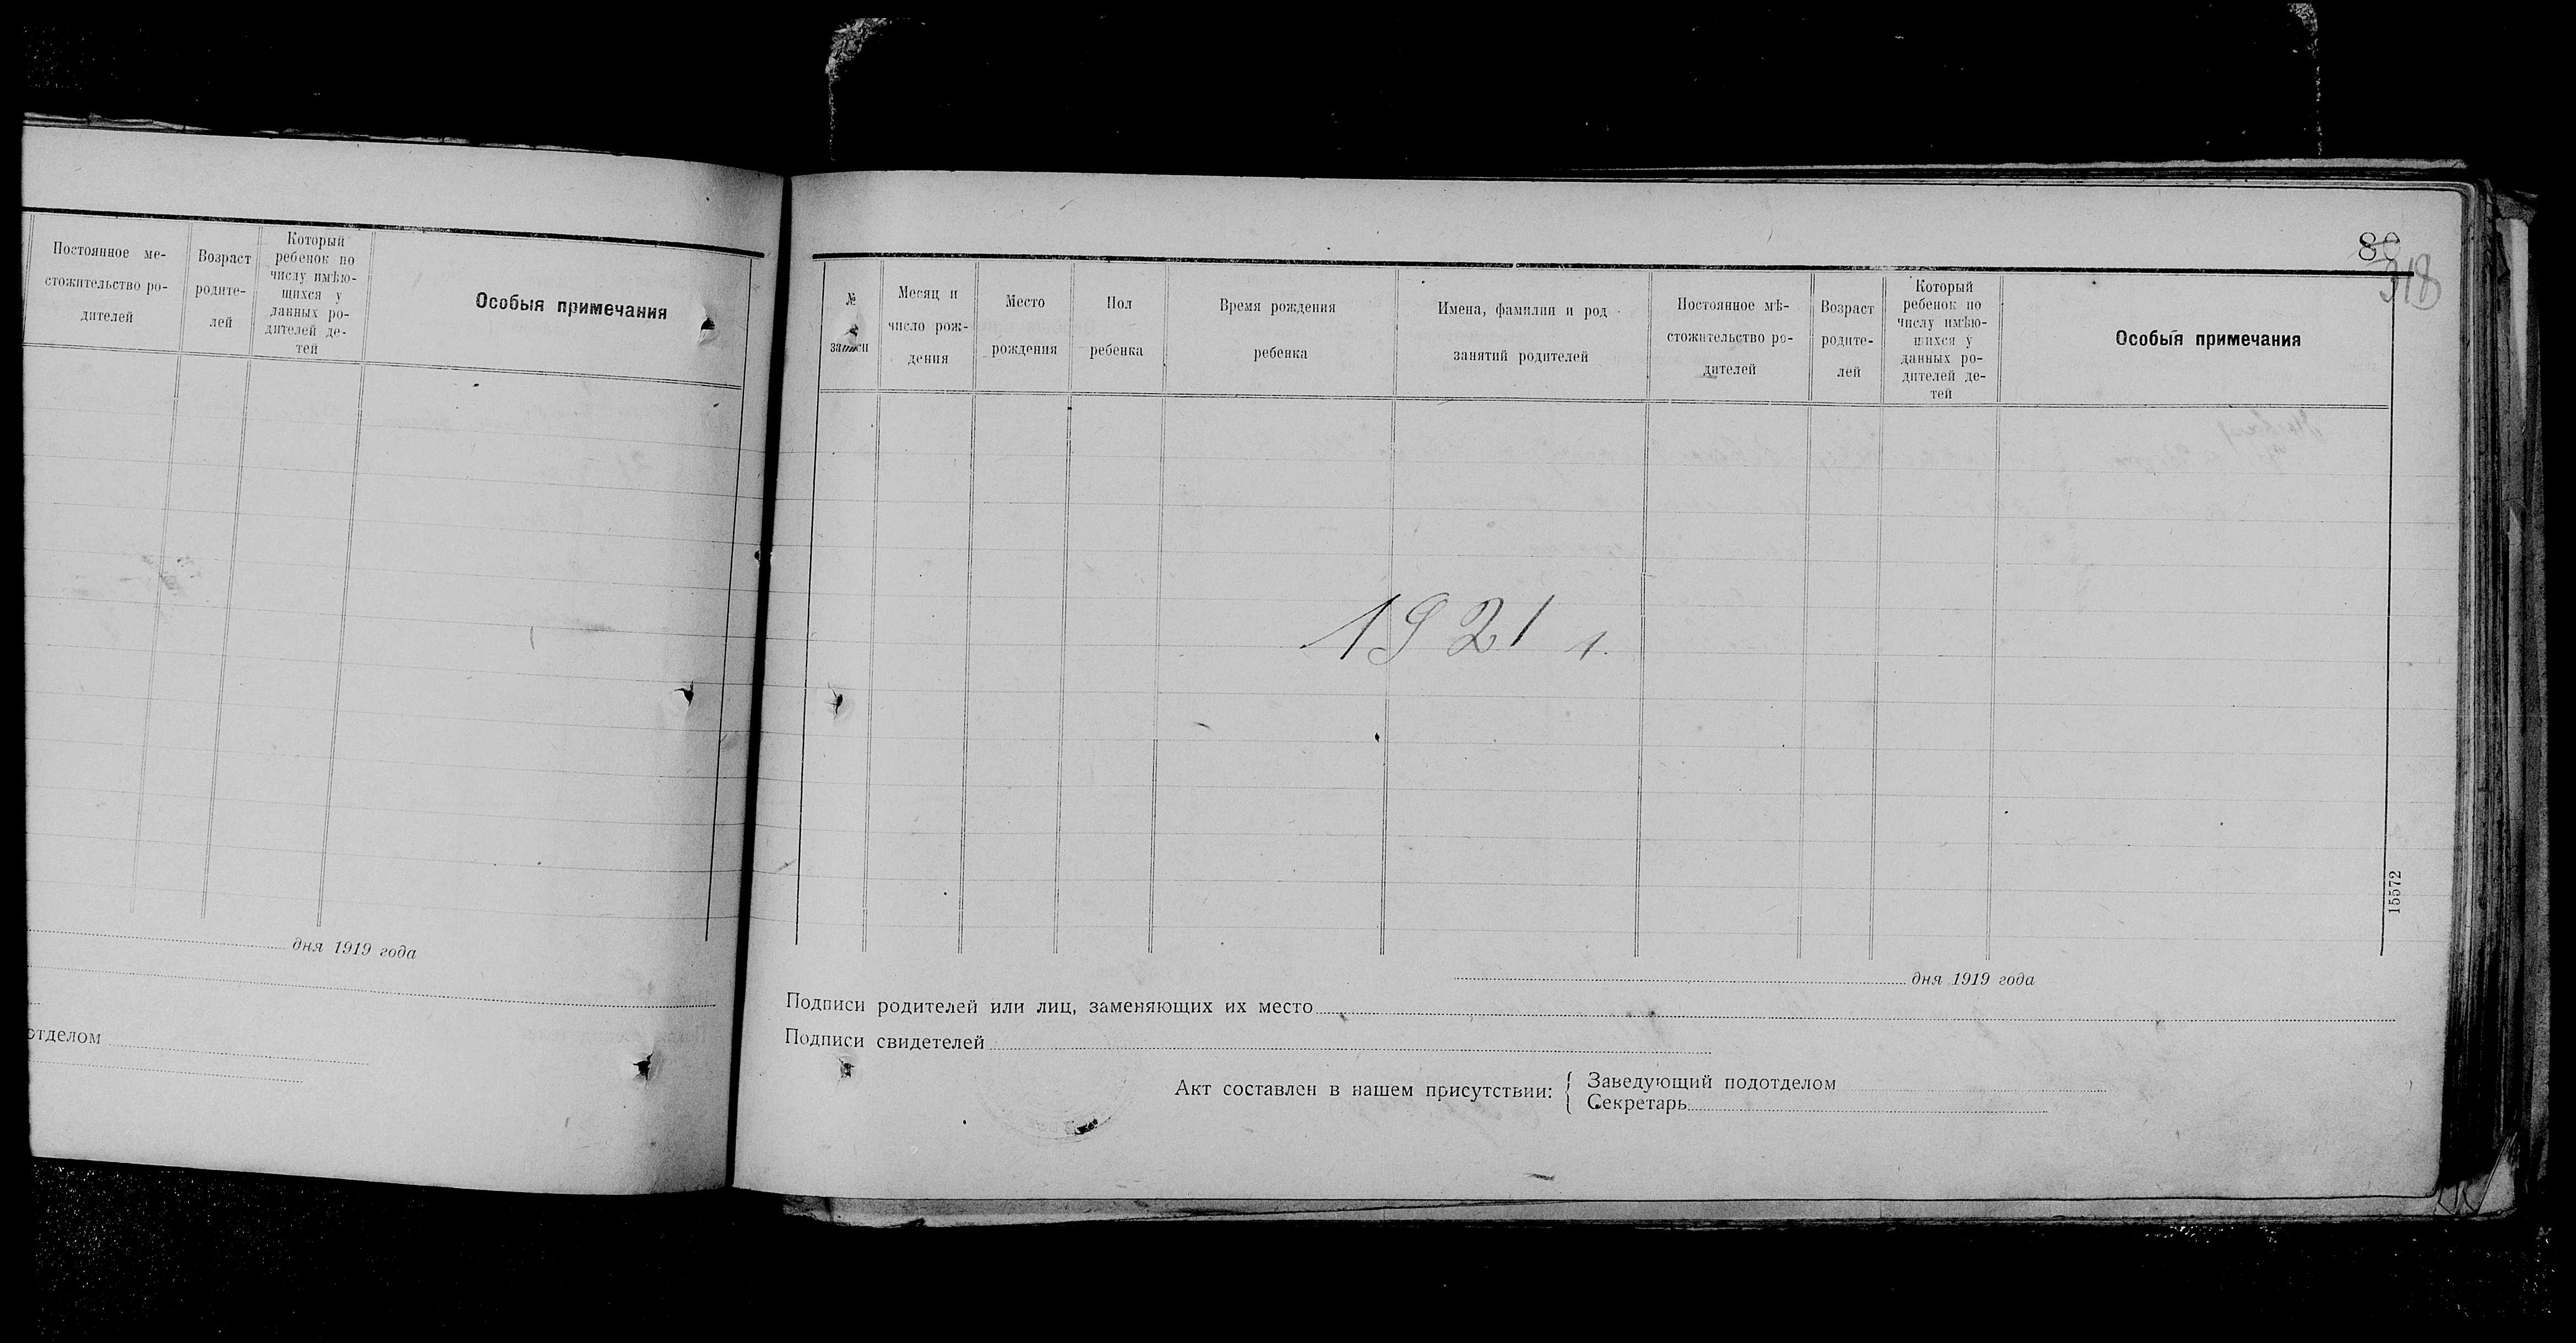 Постоянное ме-
стожительство ро-
дителей
Возраст
родите-
лей
Который
ребенок по
числу имѣю-
щихся у
данных ро-
дителей де-
тей
Особыя примечания
дня 1919 года
отделом
318
№
записи
Месяц и
число рож-
дения
Место
рождения
Пол
ребенка
Время рождения
ребенка
Имена, фамилии и род
занятий родителей
Постоянное мѣ-
стожительство ро-
дителей
Возраст
родите-
лей
Который
ребенок по
числу имѣю-
щихся у
данных ро-
дителей де-
тей
Особыя примечания
1921 г.
15572
дня 1919 года
Подписи родителей или лиц, заменяющих их место
Подписи свидетелей
Акт составлен в нашем присутствии: { Заведующий подотделом
Секретарь